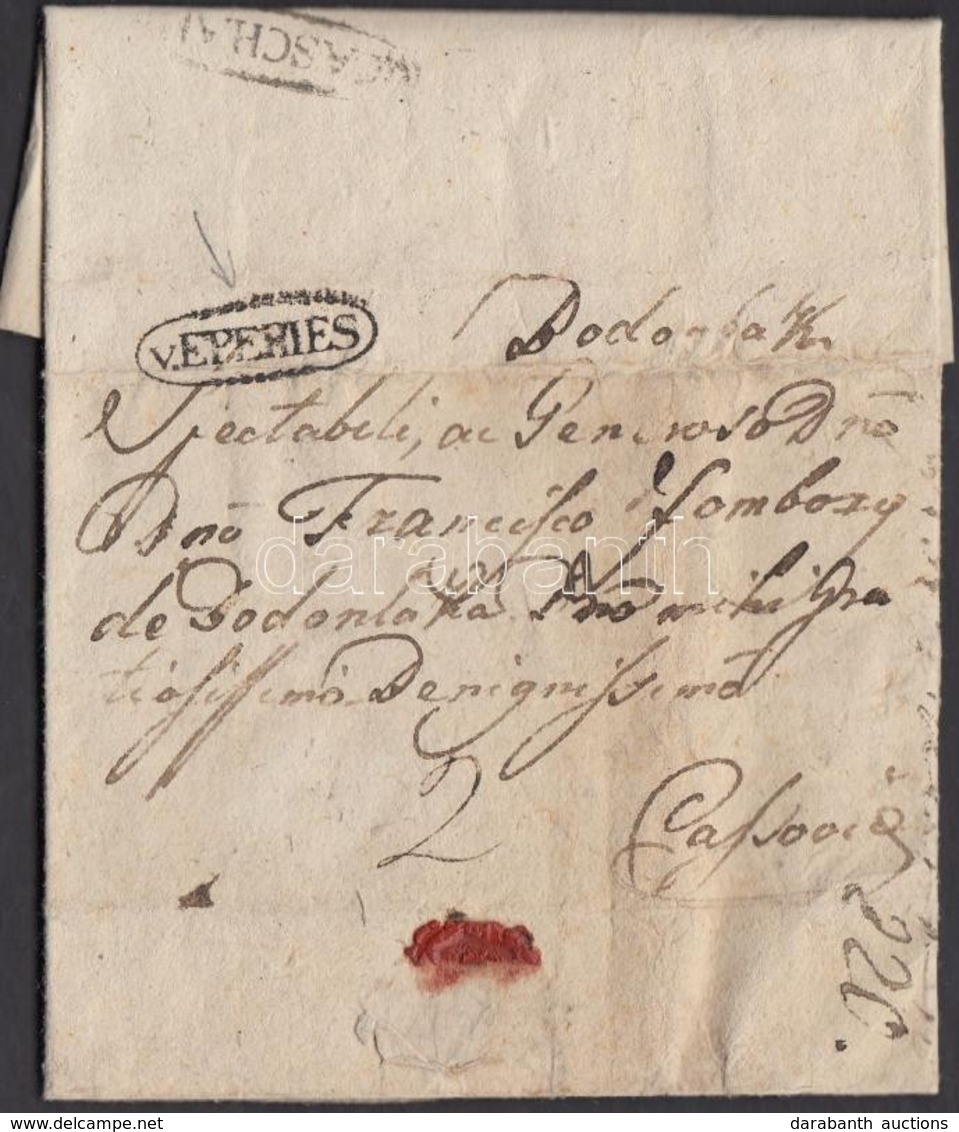 V.CASCHAU
V.EPERIES
Bodonlak
Spectabili, ac Generoso Dnō
Dnō Francisco Fombory
de Bodonlaka Dnō mihi Gra
tiosissimō Benignissimō
2
Cassoviæ
darabanth
darabanth auctions